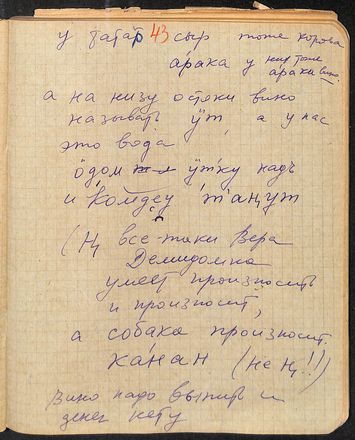 у татар 43 сыр тоже корова
а́рака у них тоже
а́раки вино.
а на низу остяки вино
называть ӱт, а у нас
это вода
ӧдом ӱтку надъ
и ко́мдеу таӊут
(Ӊ все-таки Вера
Демидовна
умеет произносить
и произносит,
а собака произносит
канан (не Ӊ!!)
Вино надо выпить и
денег нету